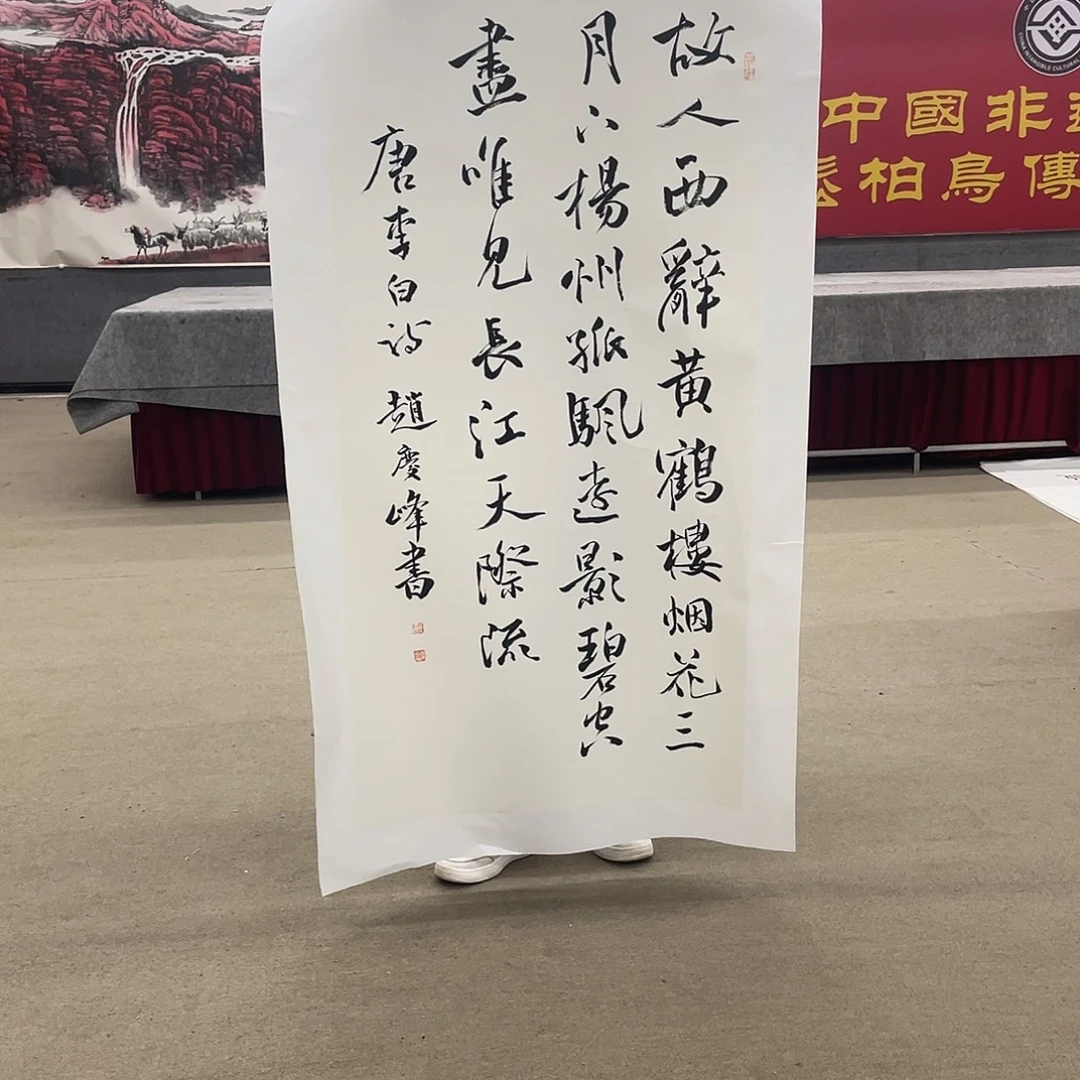 故人西辭黃鶴樓烟花三
月下楊州孤颿遠影碧空
盡唯見長江天際流
唐李白詩 趙慶峰書
中國非
柏鳥傳